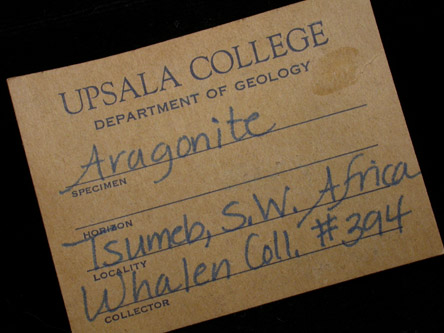 UPSALA COLLEGE
DEPARTMENT OF GEOLOGY
Aragonite
SPECIMEN
HORIZON
Tsumeb, S.W. Africa
LOCALITY
Whalen Coll. #394
COLLECTOR